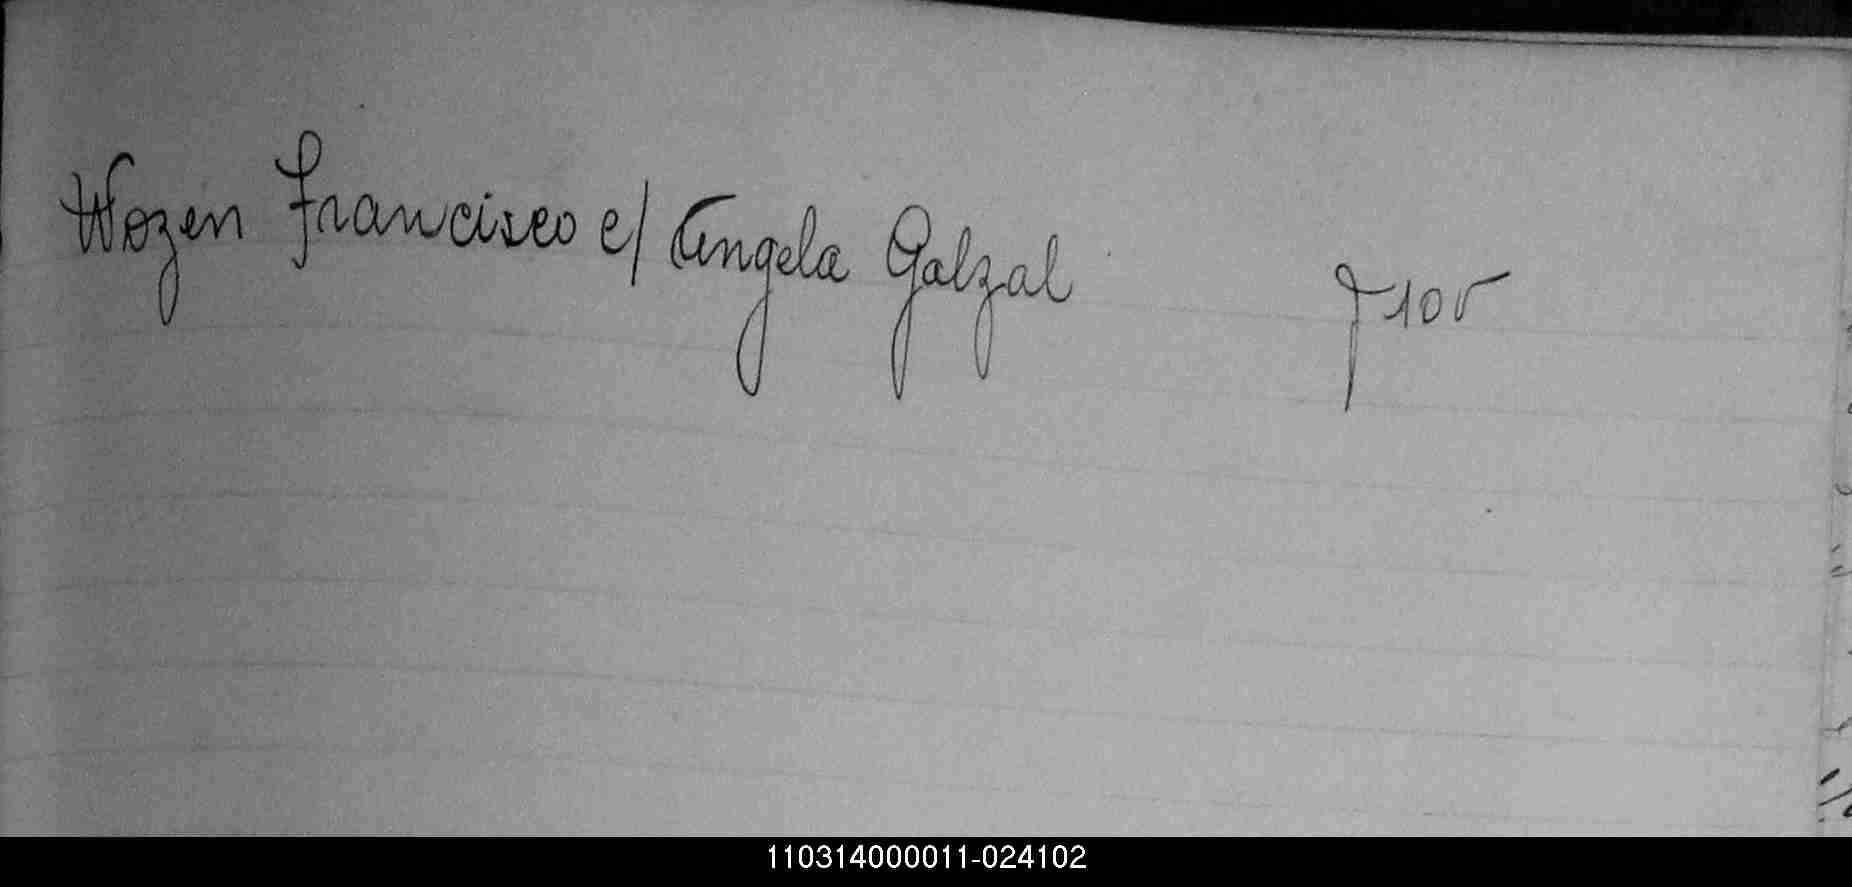 Wozen Francisco c/ Angela Galzal f 105
110314000011-024102